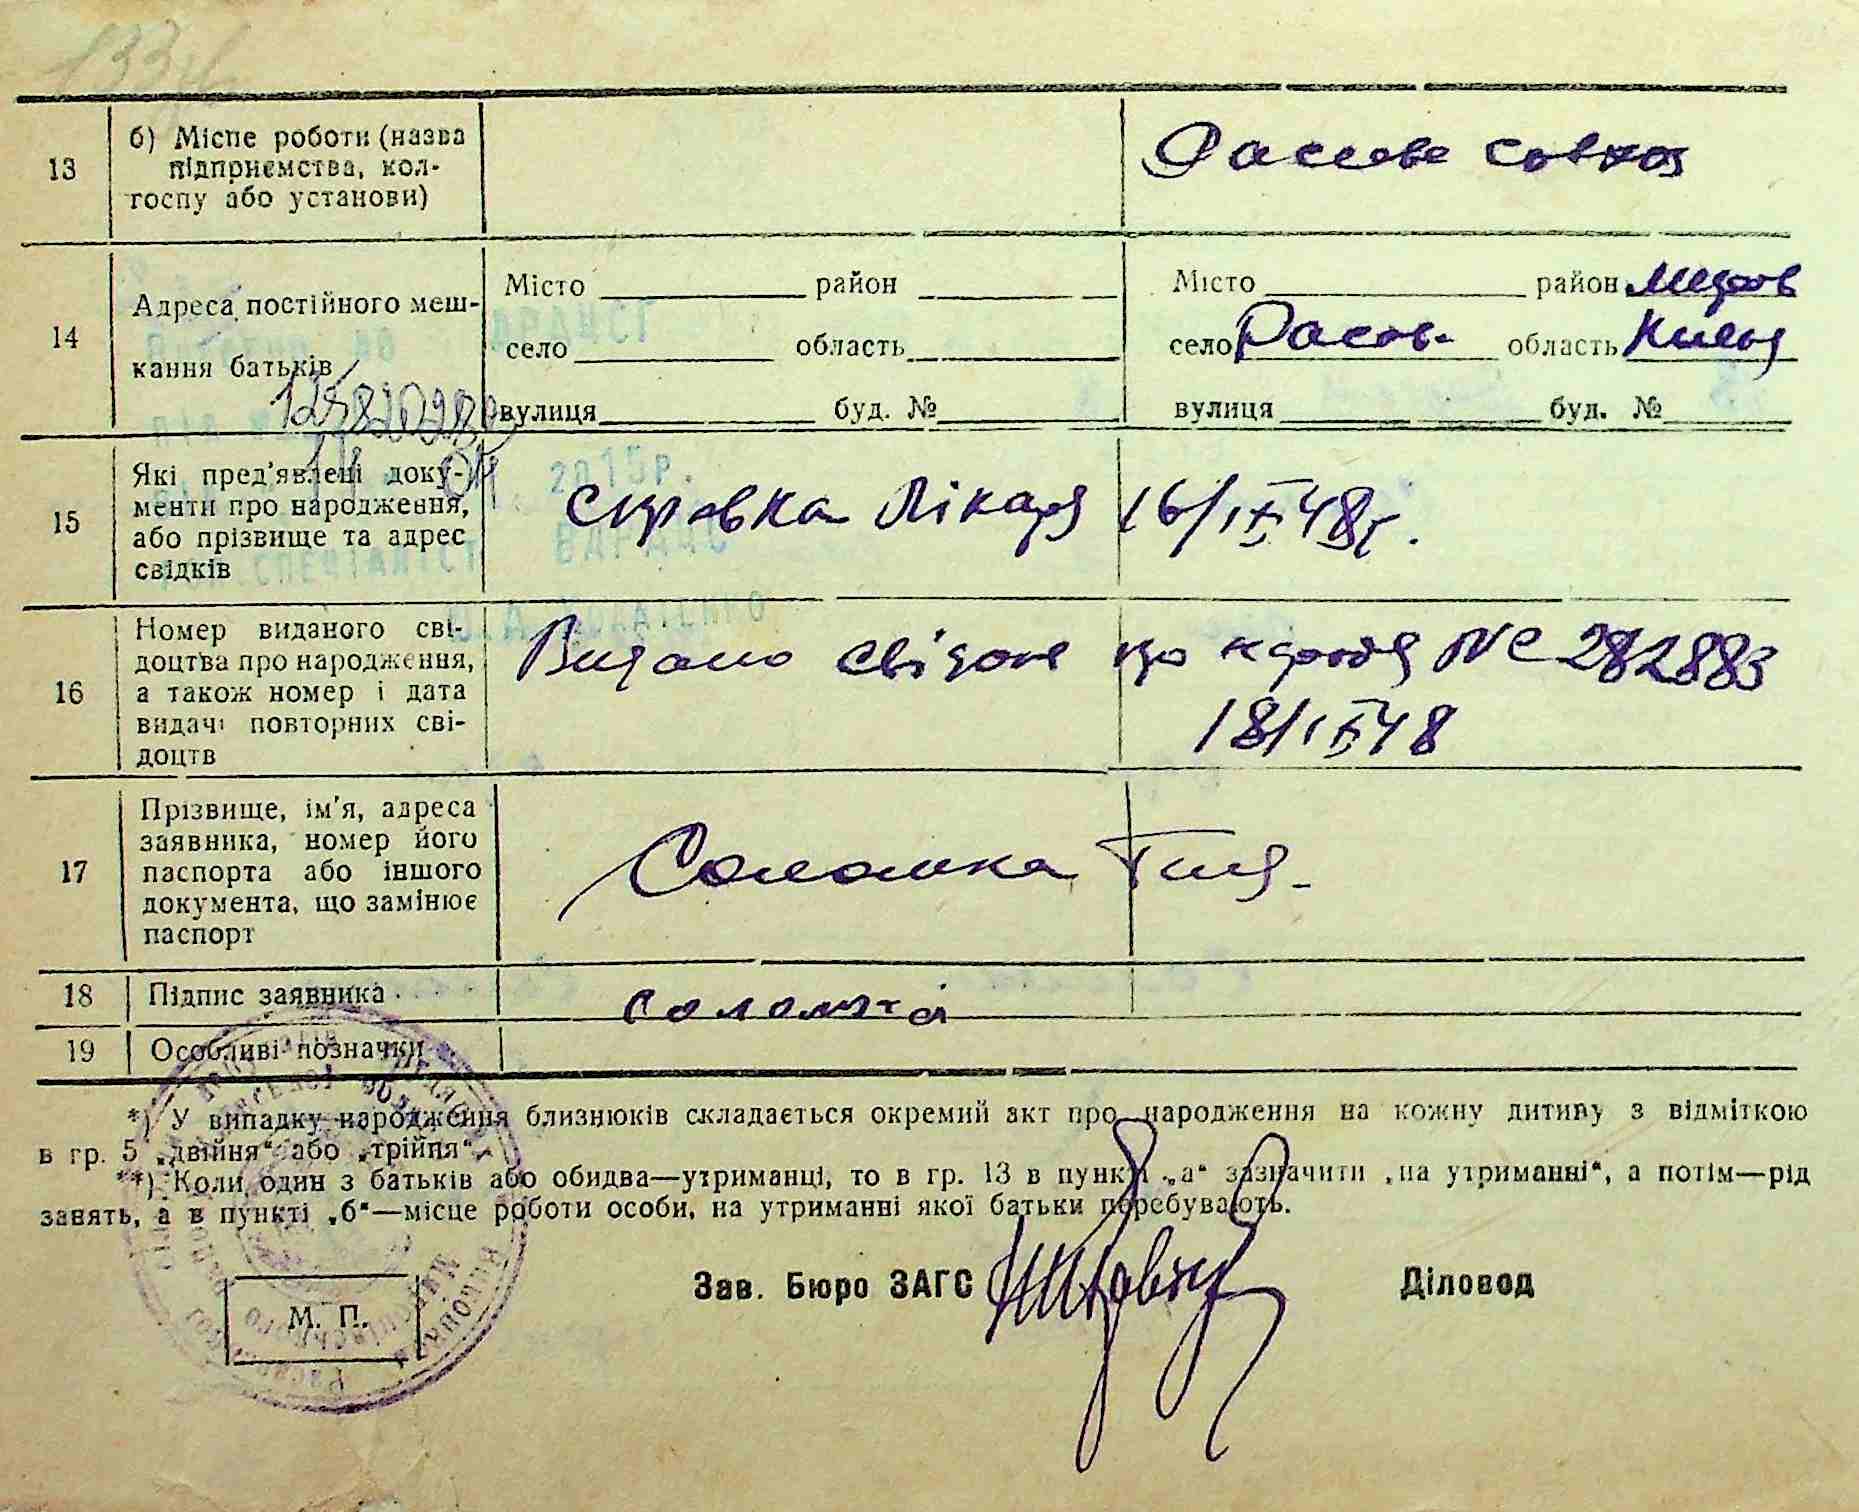 1334
13 б) Місце роботи (назва
підприємства, кол-
госпу або установи)
совхоз
14 Адреса постійного меш-
кання батьків
Місто район
село область
вулиця буд. №
Місто район
село область
вулиця буд. №
2015р.
15 Які пред'явлені доку-
менти про народження,
або прізвище та адрес
свідків
справка лікаря 16/IX 48р.
16 Номер виданого сві-
доцтва про народження,
а також номер і дата
видачі повторних сві-
доцтв
Видано свідоцт про народж № 282883
18/IX 48
17 Прізвище, ім'я, адреса
заявника, номер його
паспорта або іншого
документа, що замінює
паспорт
Соломка
18 Підпис заявника
соломка
19 Особливі позначки
*) У випадку народження близнюків складається окремий акт про народження на кожну дитину з відміткою
в гр. 5 „двійня“ або „трійня“.
**) Коли один з батьків або обидва—утриманці, то в гр. 13 в пункті „а“ зазначити „на утриманні“, а потім—рід
занять, а в пункті „б“—місце роботи особи, на утриманні якої батьки перебувають.
Зав. Бюро ЗАГС Діловод
М. П.